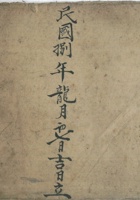 民國捌年龍月吉日立